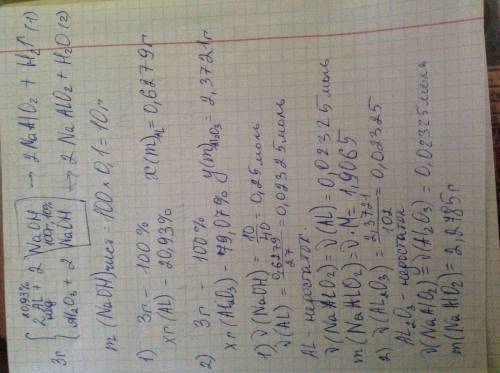 20,93%
2Al + 2 NaOH → 2NaAlO₂ + H₂↑ (1)
100г, 10%
3г
Al₂O₃ + 2 NaOH → 2 NaAlO₂ + H₂O (2)
m (NaOH) чист = 100 × 0,1 = 10г
1) 3г - 100%
xг (Al) - 20,93%
x(m)Al = 0,6279г
2) 3г - 100%
xг (Al₂O₃) - 79,07%
y(m)Al₂O₃ = 2,3721г
1) ν(NaOH) = 10/40 = 0,25 моль
ν(Al) = 0,6279/27 = 0,02325 моль
Al - недостаток.
ν(NaAlO₂) = ν(Al) = 0,02325 моль
m(NaAlO₂) = ν·M = 1,9065
2) ν(Al₂O₃) = 2,3721/102 = 0,02325
Al₂O₃ - недостаток
ν(NaAlO₂) = ν(Al₂O₃) = 0,02325 моль
m(NaAlO₂) = 2,2485 г